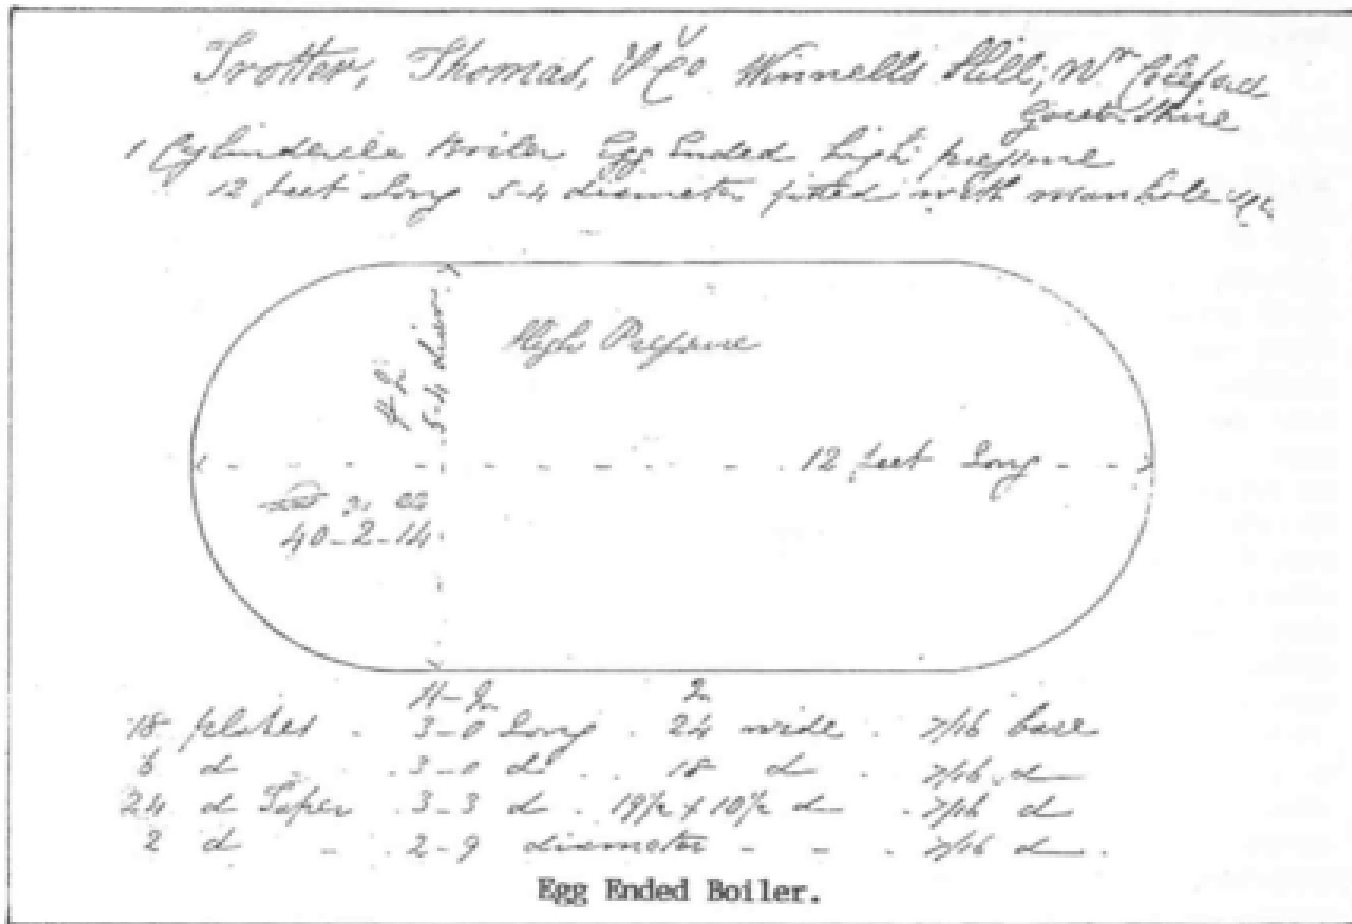 Trotter, Thomas, & Co Winnells Hill, Nr Coleford
Gloucestershire
1 Cylinderile Boiler Egg Ended high pressure
12 feet Long 5-4 diameter fitted with manhole &c
High Pressure
5-4 diam
12 feet Long
40-2-14
18 plates . 3-0 Long . 24 wide . 7/16 bare
6 d . 3-0 d . 18 d . 7/16 d
24 d Taper . 3-3 d . 19½ x 10½ d . 7/16 d
2 d - . 2-9 diameter - - . 7/16 d .
Egg Ended Boiler.